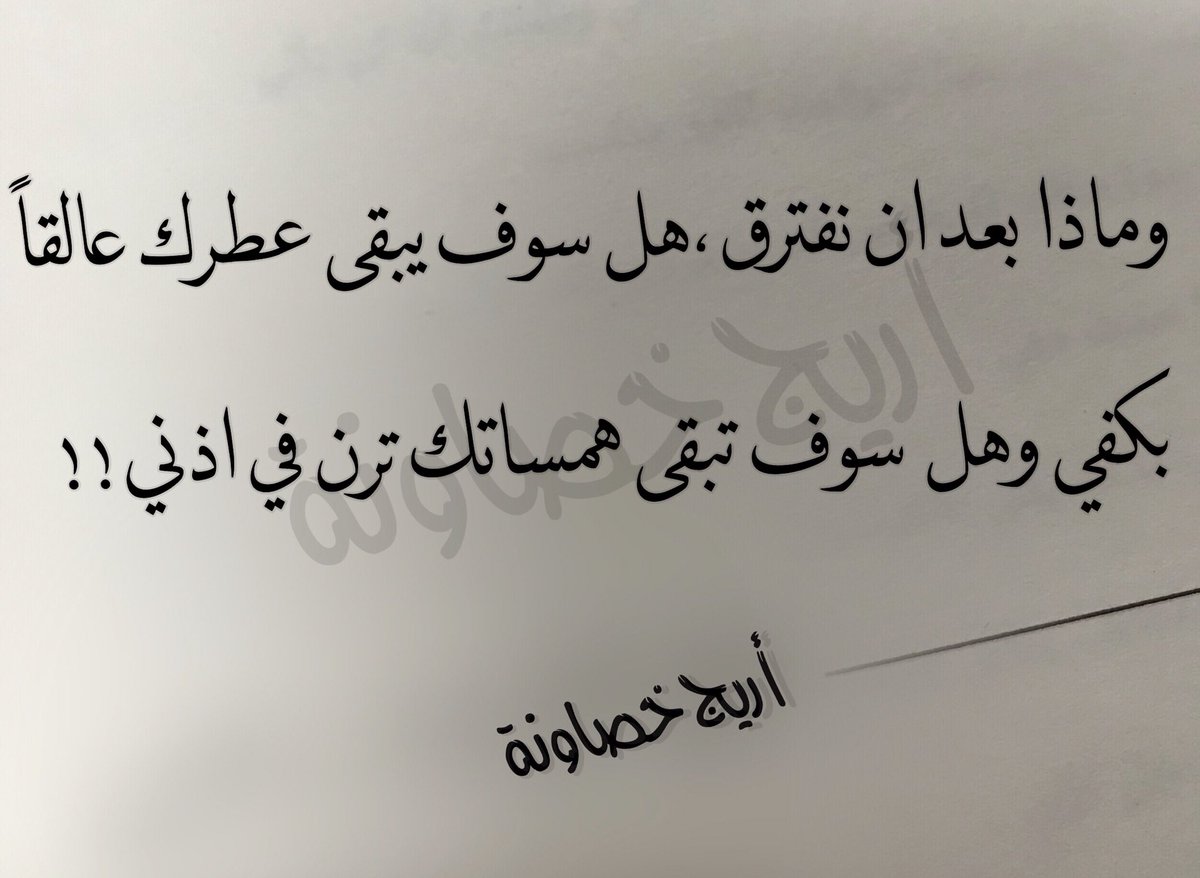 وماذا بعد ان نفترق ،هل سوف يبقى عطرك عالقاً
اريج خصاونة
بكفي وهل سوف تبقى همساتك ترن في اذني !!
أريج خصاونة